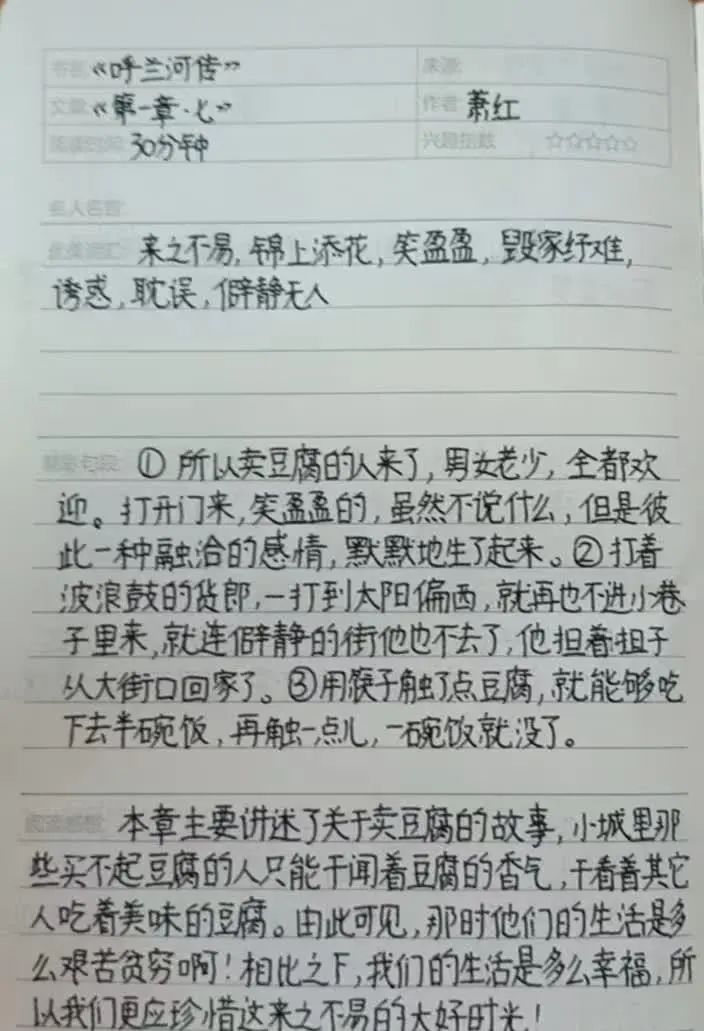 书名 《呼兰河传》 来源
文章 《第一章·七》 作者 萧红
阅读时间 30分钟 兴趣指数 ☆☆☆☆☆
名人名言
来之不易，锦上添花，笑盈盈，毁家纾难，
诱惑，耽误，僻静无人
精彩句段 ① 所以卖豆腐的人来了，男女老少，全都欢
迎。打开门来，笑盈盈的，虽然不说什么，但是彼
此一种融洽的感情，默默地生了起来。②打着
波浪鼓的货郎，一打到太阳偏西，就再也不进小巷
子里来，就连僻静的街他也不去了，他担着担子
从大街口回家了。③用筷子触了点豆腐，就能够吃
下去半碗饭，再触一点儿，一碗饭就没了。
本章主要讲述了关于卖豆腐的故事，小城里那
些买不起豆腐的人只能干闻着豆腐的香气，干看着其它
人吃着美味的豆腐。由此可见，那时他们的生活是多
么艰苦贫穷啊！相比之下，我们的生活是多么幸福，所
以我们更应珍惜这来之不易的大好时光！